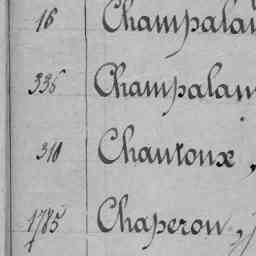 16 Champalau
336 Champalau
310 Chantoux,
1785 Chaperon,